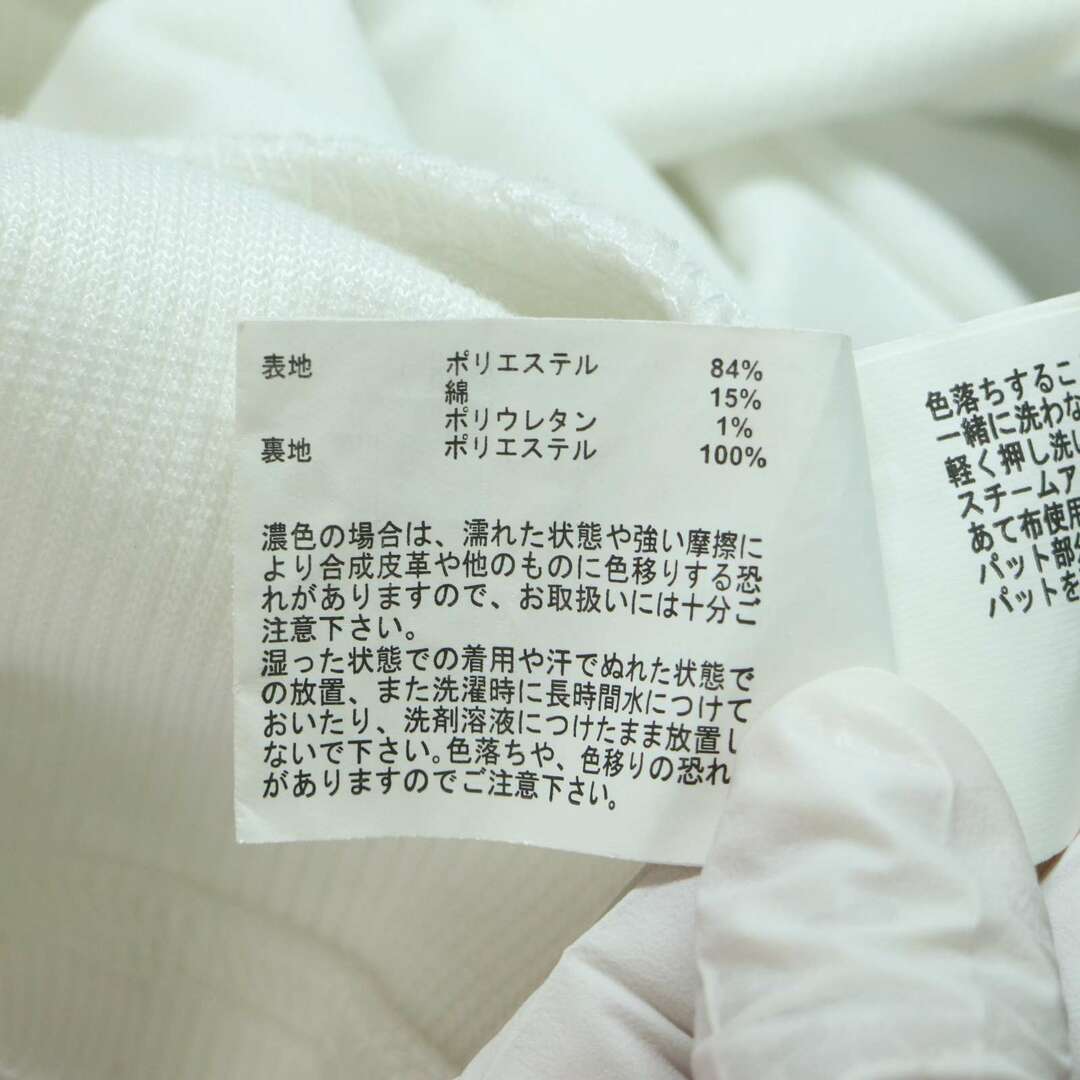 表地 ポリエステル 84%
綿 15%
ポリウレタン 1%
裏地 ポリエステル 100%
濃色の場合は、濡れた状態や強い摩擦に
より合成皮革や他のものに色移りする恐
れがありますので、お取扱いには十分ご
注意下さい。
湿った状態での着用や汗でぬれた状態で
の放置、また洗濯時に長時間水につけて
おいたり、洗剤溶液につけたまま放置し
ないで下さい。色落ちや、色移りの恐れ
がありますのでご注意下さい。
色落ちするこ
一緒に洗わな
軽く押し洗い
スチームア
あて布使用
パット部分
パットを